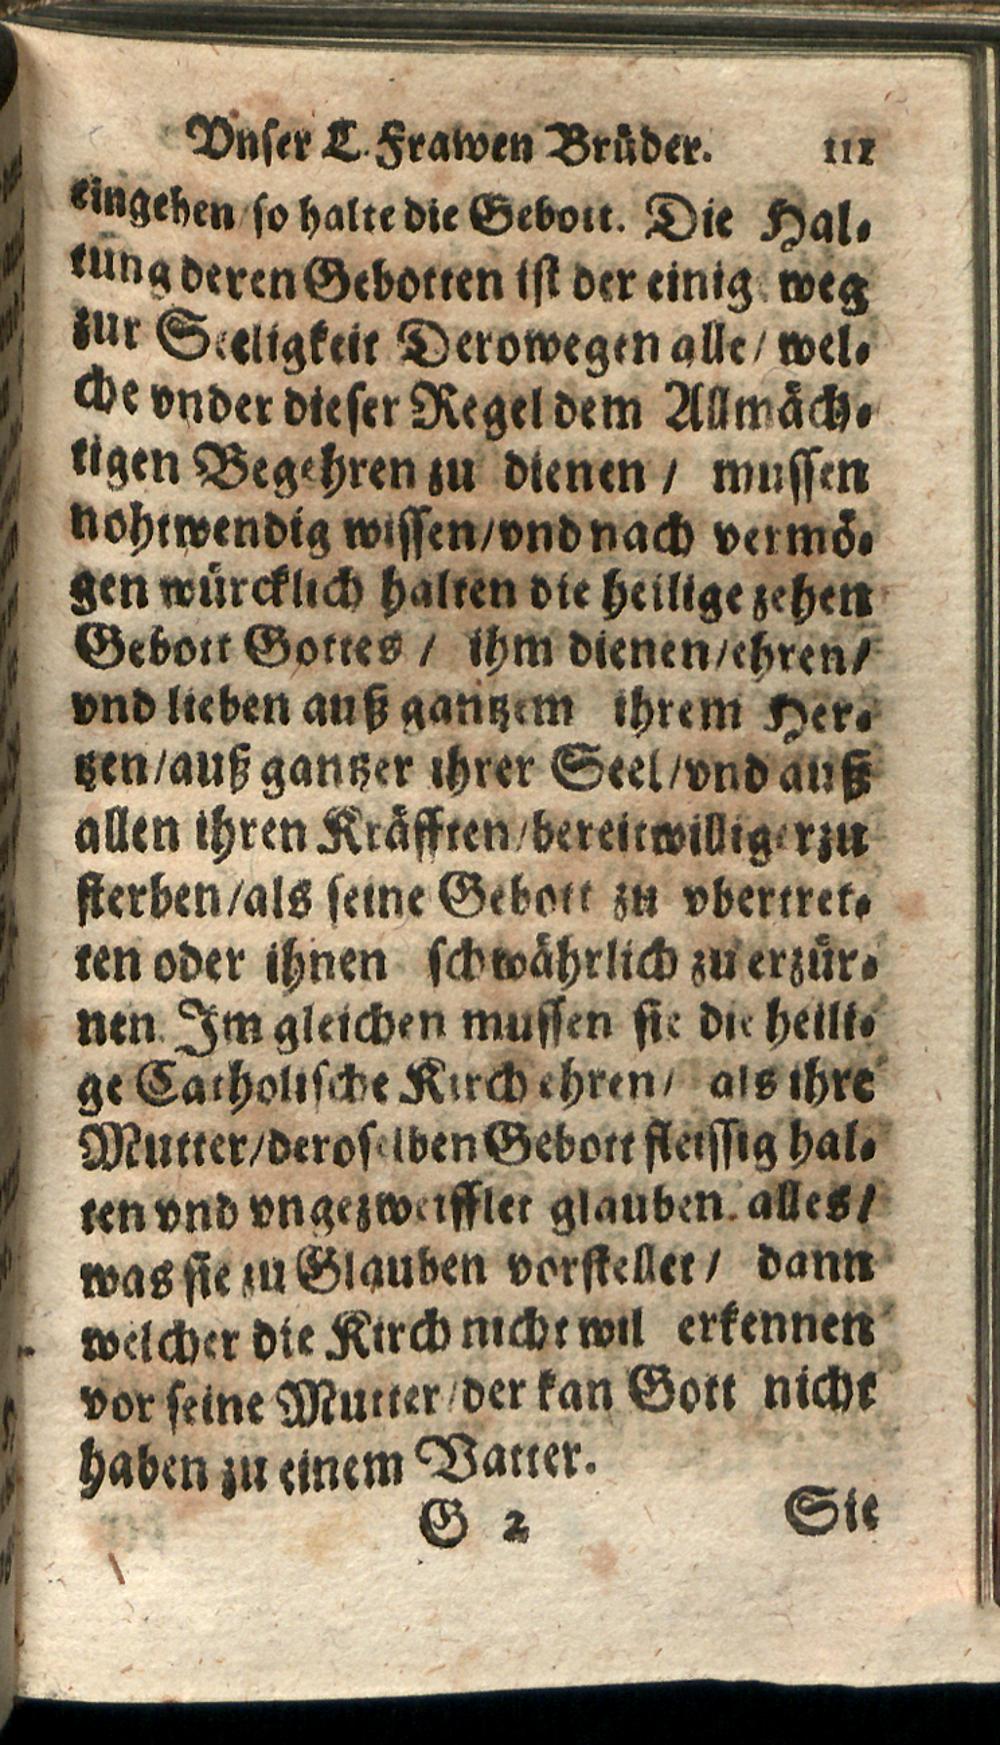 Vnser L. Frawen Brüder. 111
eingehen so halte die Gebott. Die Hal-
tung deren Gebotten ist der einig weg
zur Seeligkeit Derowegen alle/ wel-
che vnder dieser Regel dem Allmäch-
tigen Begehren zu dienen / mussen
nohtwendig wissen/vnd nach vermö-
gen würcklich halten die heilige zehen
Gebott Gottes / ihm dienen/ehren/
vnd lieben auß gantzem ihrem Her-
tzen/auß gantzer ihrer Seel/vnd auß
allen ihren Kräfften/bereitwilliger zu
sterben/als seine Gebott zu vbertret-
ten oder ihnen schwährlich zu erzür-
nen. Im gleichen mussen sie die heili-
ge Catholische Kirch ehren/ als ihre
Mutter/deroselben Gebott fleissig hal-
ten vnd vngezweifflet glauben alles/
was sie zu Glauben vorstellet / dann
welcher die Kirch nicht wil erkennen
vor seine Mutter/der kan Gott nicht
haben zu einem Vatter.
G 2 Sie